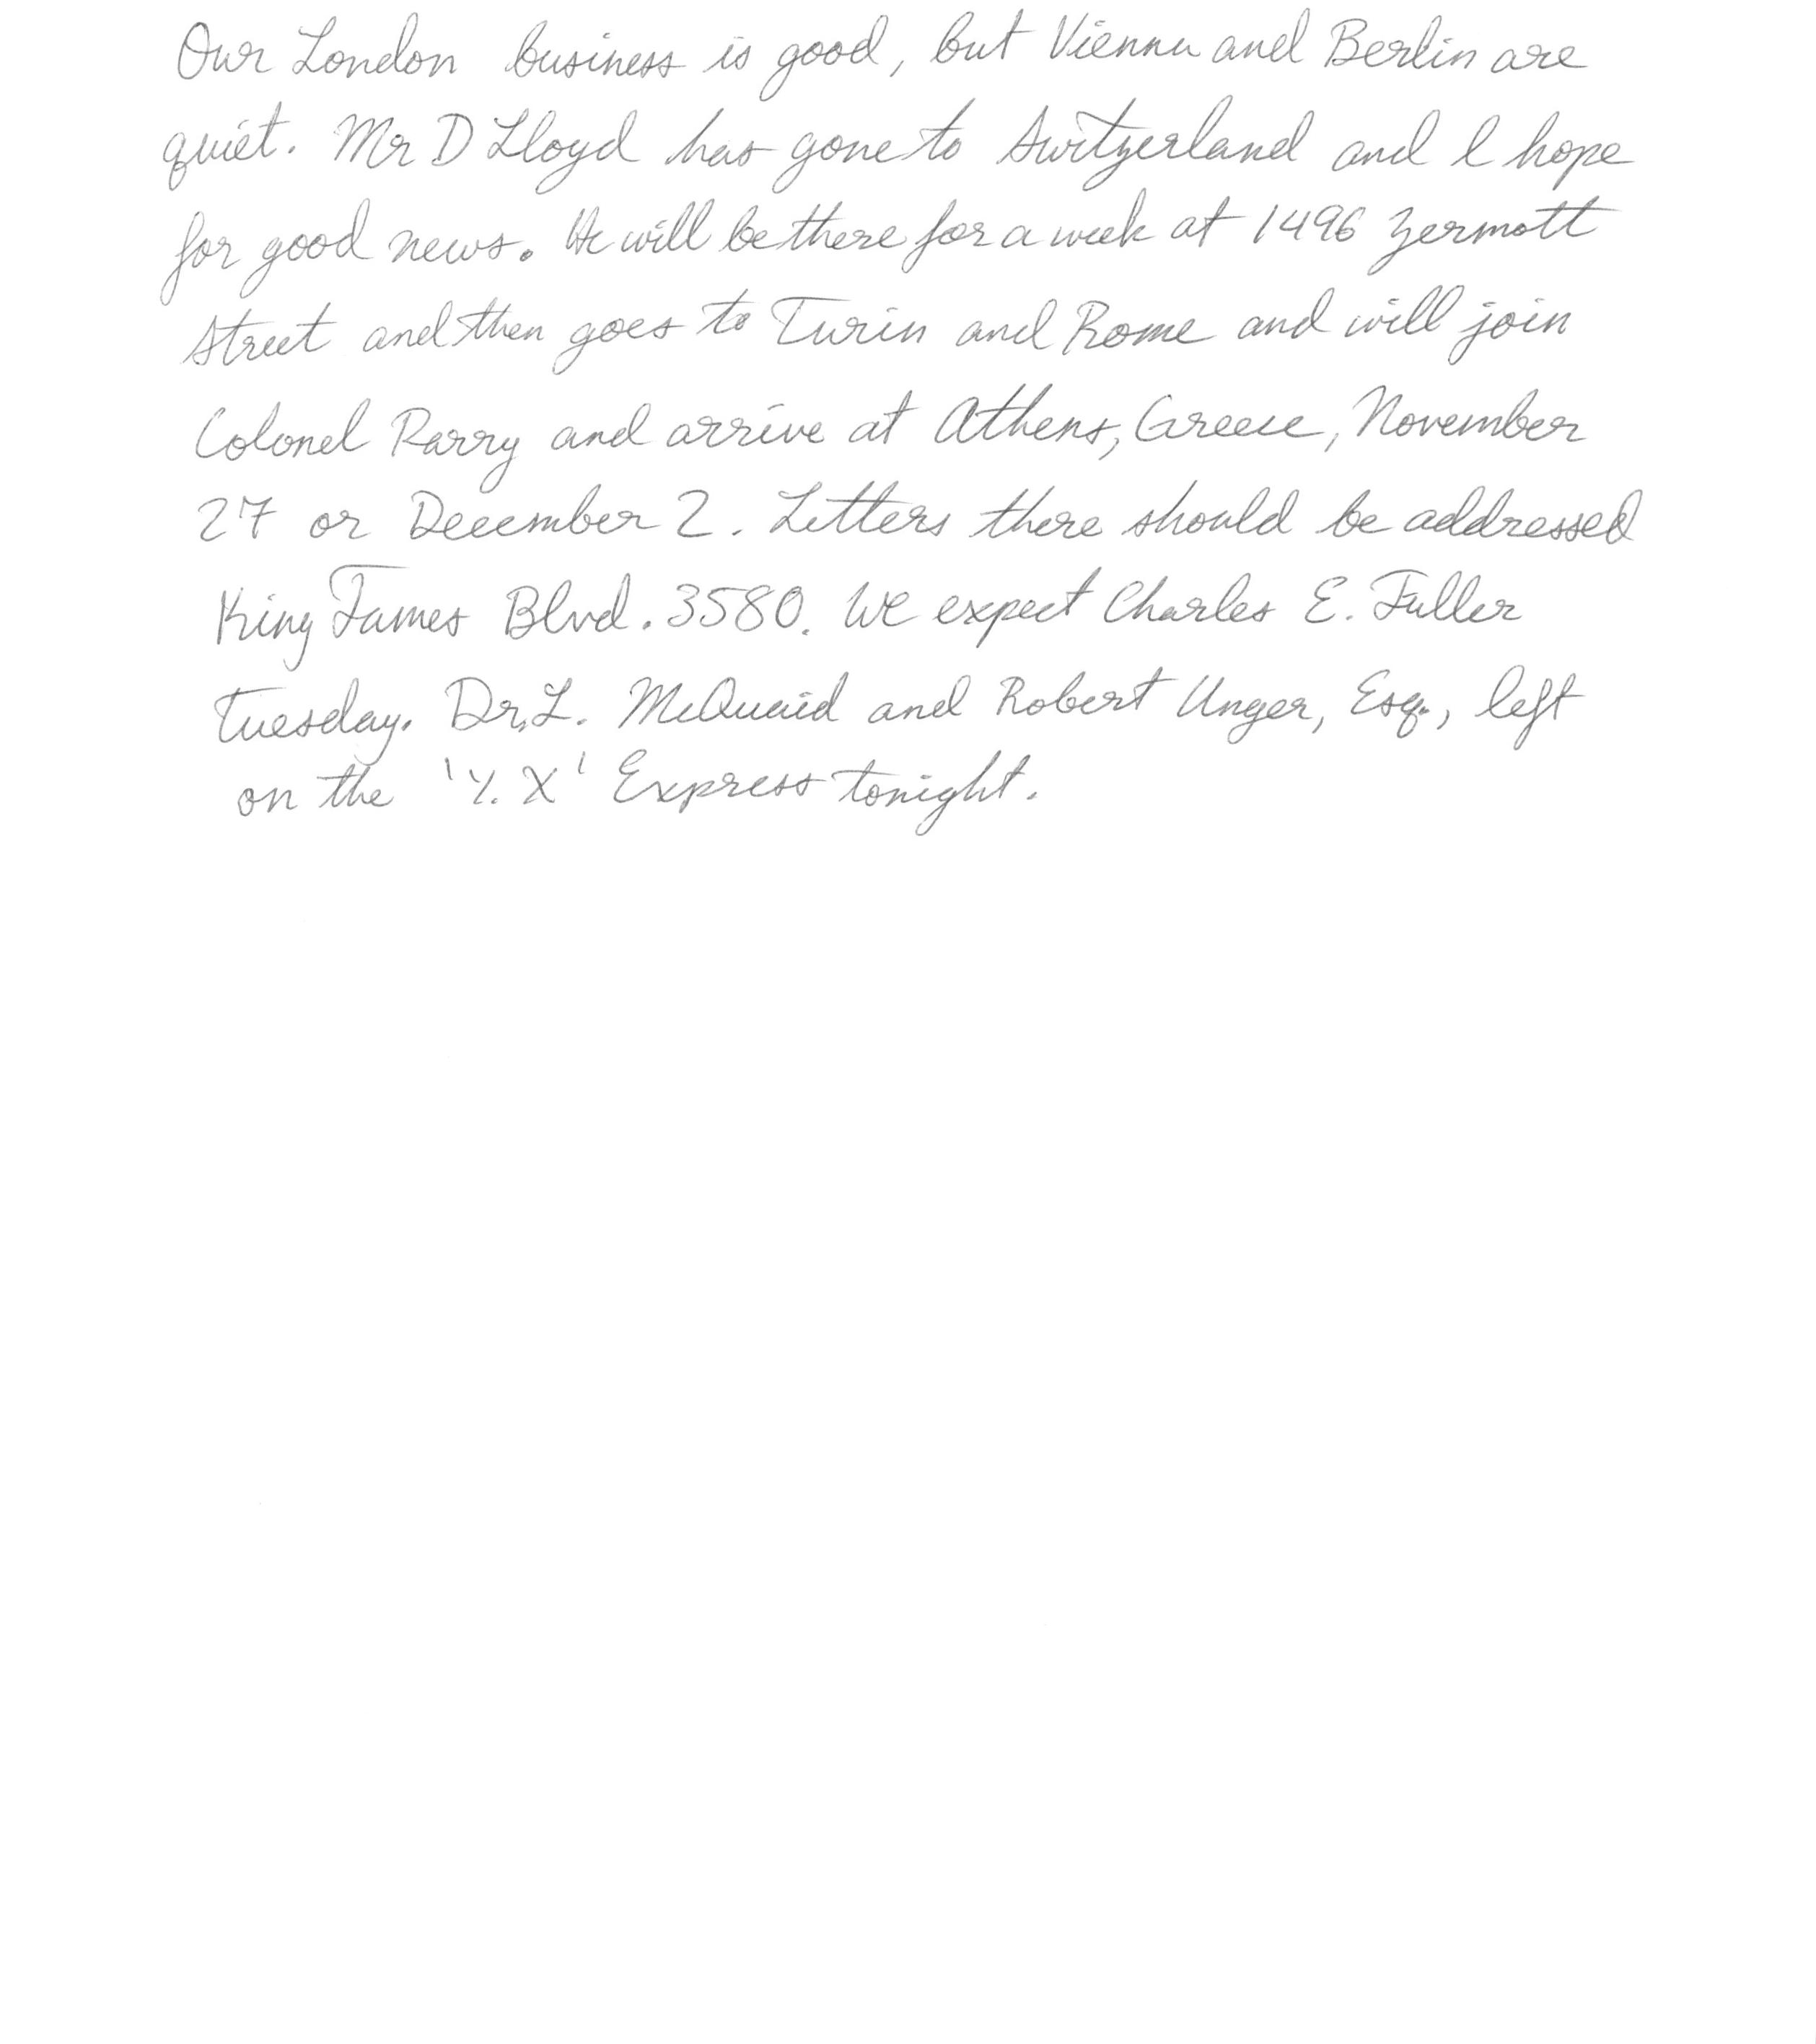 Our London business is good, but Vienna and Berlin are
quiet. Mr D Lloyd has gone to Switzerland and I hope
for good news. He will be there for a week at 1496 Zermott
Street and then goes to Turin and Rome and will join
Colonel Parry and arrive at Athens, Greece, November
27 or December 2. Letters there should be addressed
King James Blvd. 3580. We expect Charles E. Fuller
Tuesday. Dr. L. McQuaid and Robert Unger, Esq., left
on the 'Y. X' Express tonight.